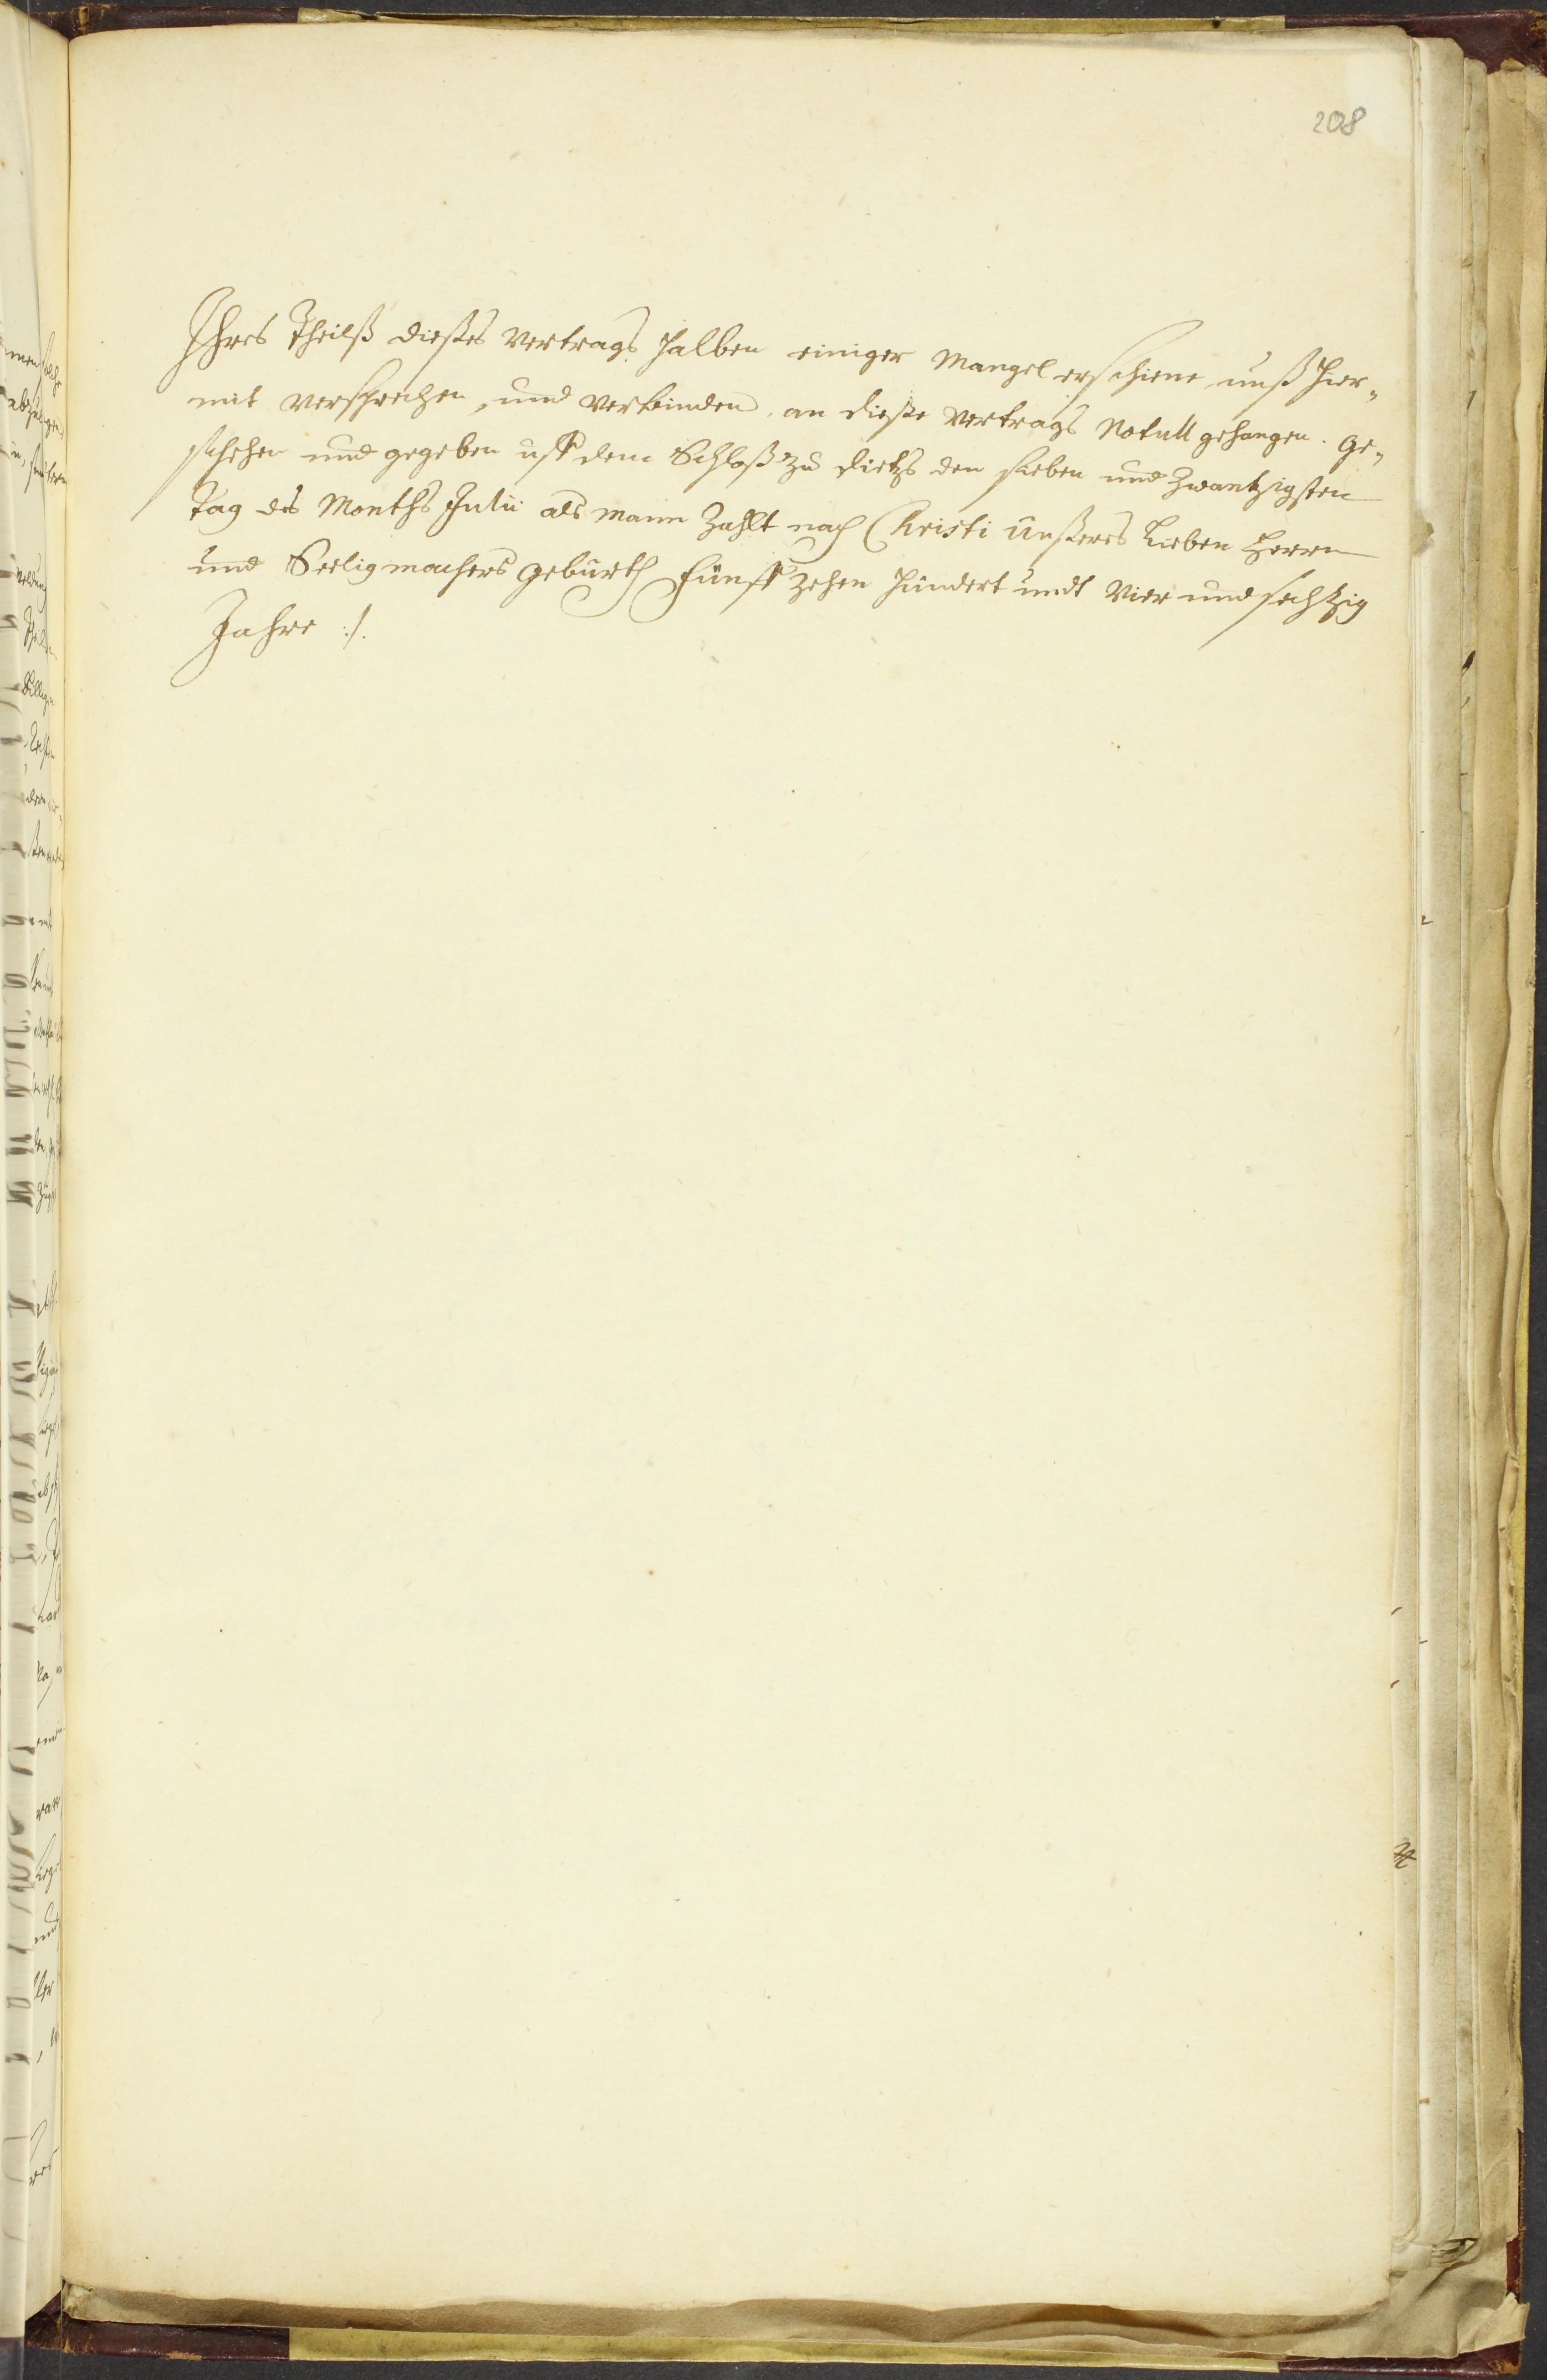 208
Ihres Theilß dießes Vertrags halben einiger Mangel erschiene, unß hier„
mit versprechen, und verbinden, an dieße Vertrags Notull gehangen. Ge„
schehen und gegeben uff dem Schloß zu Dietz den sieben und zwantzigsten
Tag des Months Julii als mann Zahlt nach Christi unßeres Lieben Herrn
und Seeligmachers geburth Fünffzehen hundert undt Vier und sechtzig
Jahre :/.